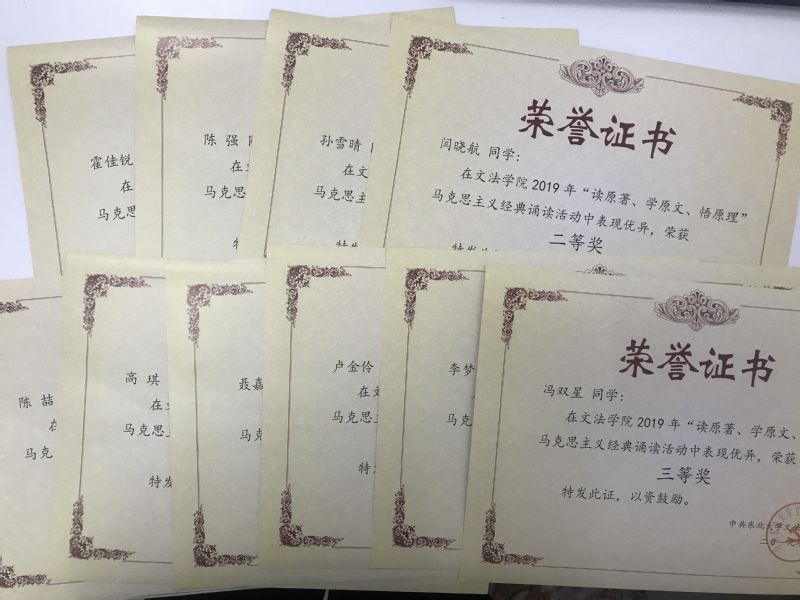 霍佳锐
在
马克思
陈 强 同
在文
马克思主
特
孙雪晴
在文
马克思主
特发
荣誉证书
闫晓航 同学:
在文法学院2019年“读原著、学原文、悟原理”
马克思主义经典诵读活动中表现优异,荣获
二等奖
特发
陈 喆
在
马克
高 琪
在文
马克思
特发
聂嘉
在
马克
卢金伶
在文
马克思主
特发
李梦
马克
荣誉证书
冯双星 同学:
在文法学院2019年“读原著、学原文、
马克思主义经典诵读活动中表现优异,荣获
三等奖
特发此证,以资鼓励。
中共东北大学文
二〇一九